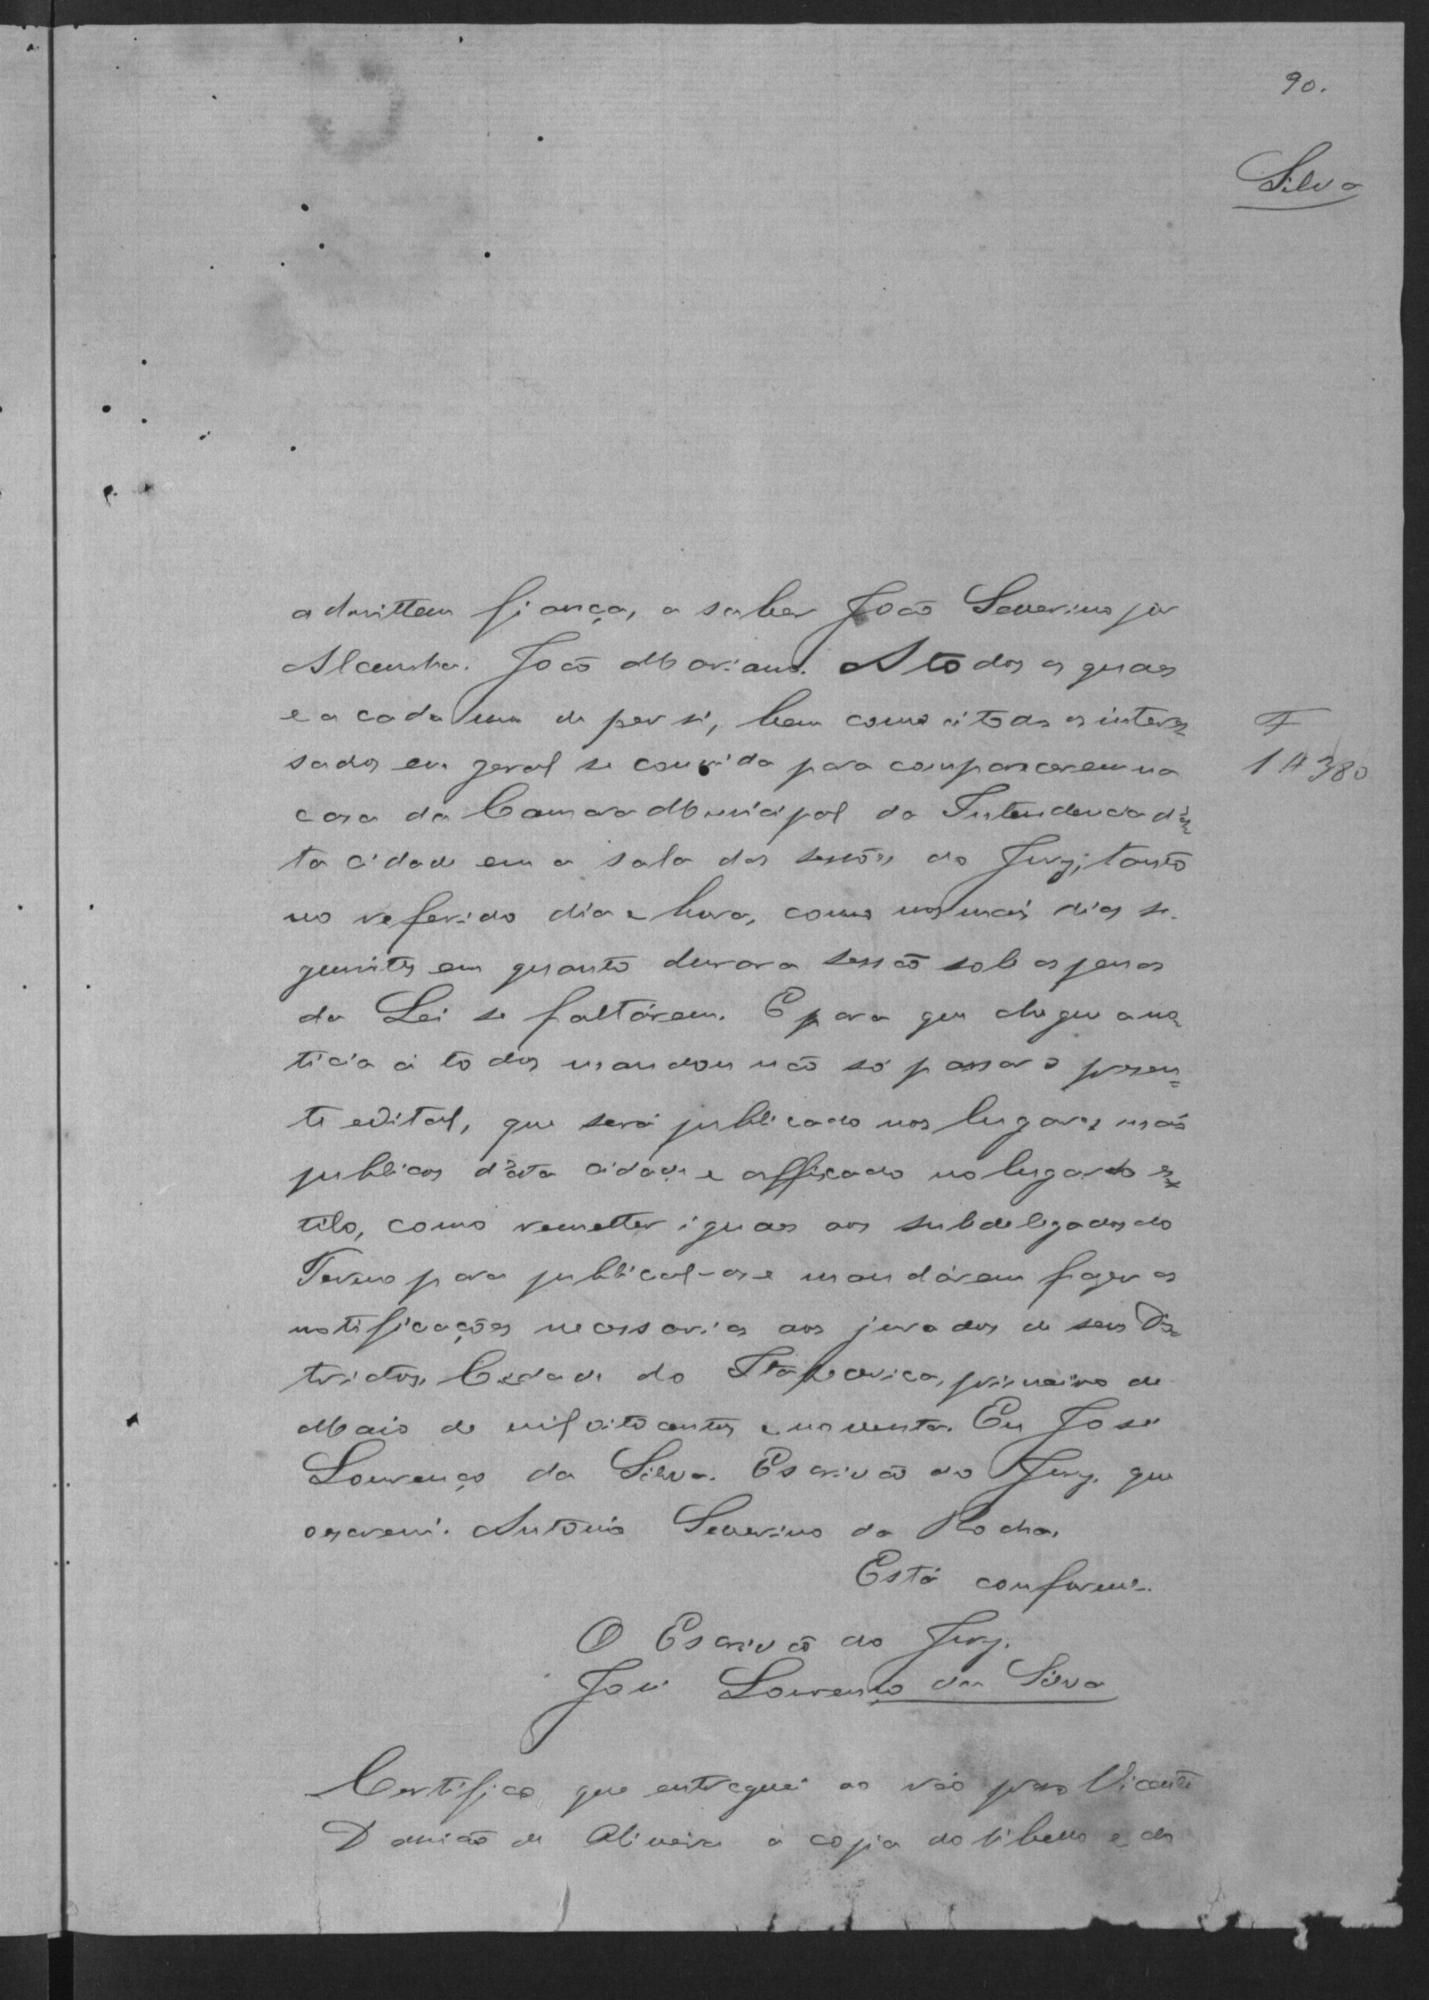 90.
Silva
admittem fiança, a saber João Severino por
Alcunha. João Mariano. A todos os quaes
e a cada um de per si, bem como á todos os interes=
sados em geral se convida para comparecerem na
F
1#380
casa da Camara Municipal da Intendencia d'es=
ta cidade em a sala das sessões do Jury, tanto
no referido dia e hora, como nos mais dias se-
guintes em quanto durar a sessão sob as penas
da Lei se faltárem. E para que chegue a no=
ticia á todos mandou não só passar o presen=
te edital, que será publicado nos lugares mais
publicos d'esta cidade e affixado no lugar do es=
tilo, como remetter iguaes aos subdelegados do
Termo para publical-os e mandárem fazer as
notificações necessarias aos jurados de seus Dis=
trictos. Cidade do Itapecerica, primeiro de
Maio de mil oitocentos e noventa. Eu José
Lourenço da Silva. Escrivão do Jury. que
escrevi. Antonio Severino da Rocha.
Está conforme.
O Escrivão do Jury.
José Lourenço da Silva
Certifico que entreguei ao réo preso Vicente
Damião de Oliveira a copia do libello e do